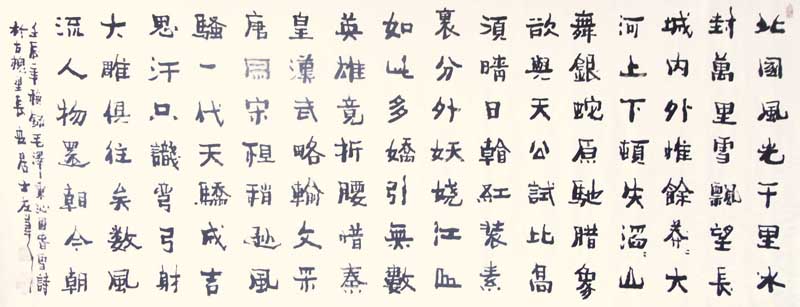 北國風光千里冰
封萬里雪飄望長
城内外惟餘莽〻大
河上下頓失滔〻山
舞銀蛇原馳腊象
欲與天公試比高
須晴日翰紅裝素
裹分外妖嬈江山
如此多嬌引無數
英雄竟折腰惜秦
皇漢武略輸文采
唐宗宋祖稍遜風
騷一代天驕成吉
思汗只識彎弓射
大雕俱往矣數風
流人物還朝今朝
壬辰年敬錄毛澤東沁園春雪詩
於古長安居士